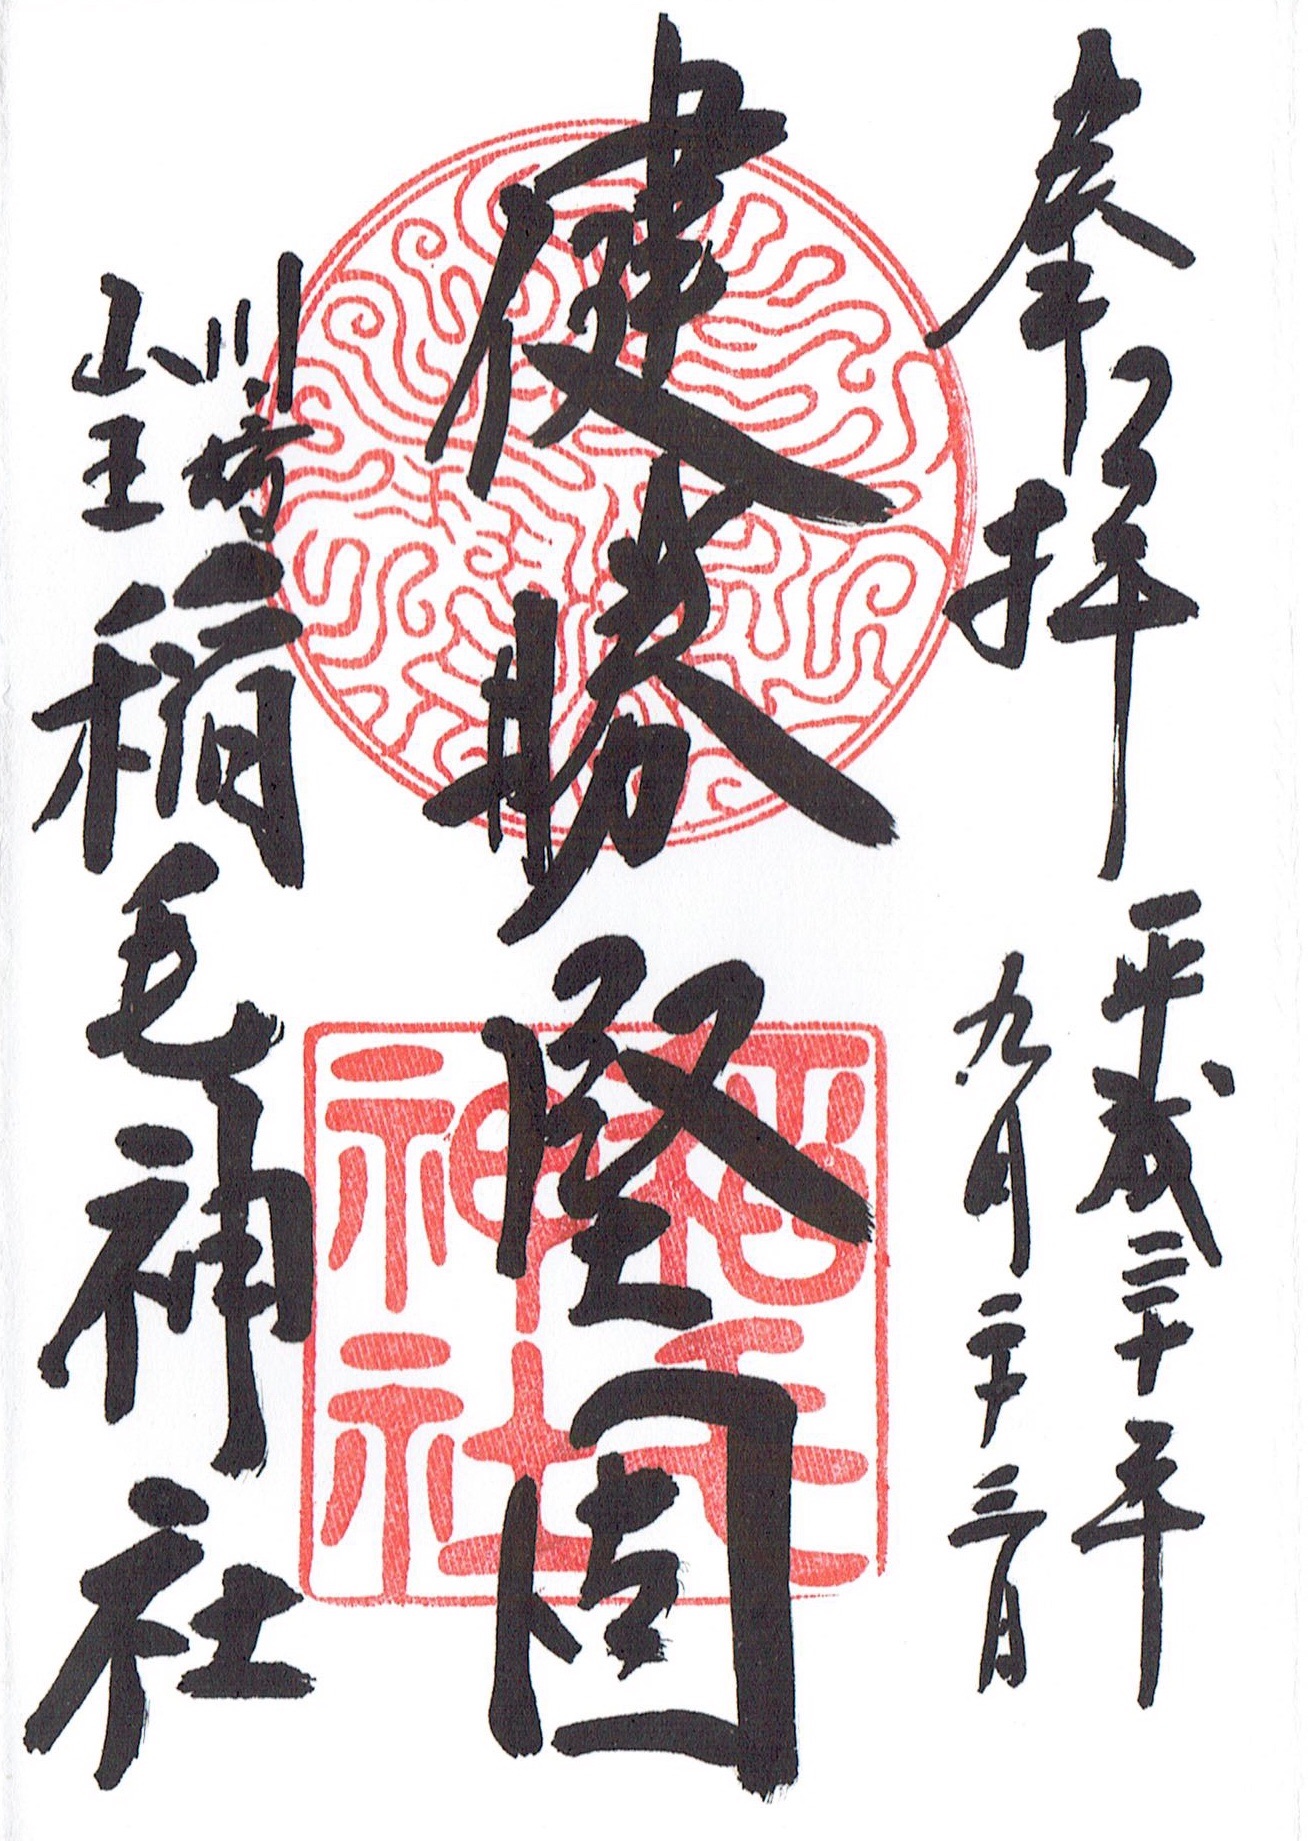 奉拝
平成三十年
九月二十三日
健勝堅固
川崎
山王
稲毛神社
稲毛
神社